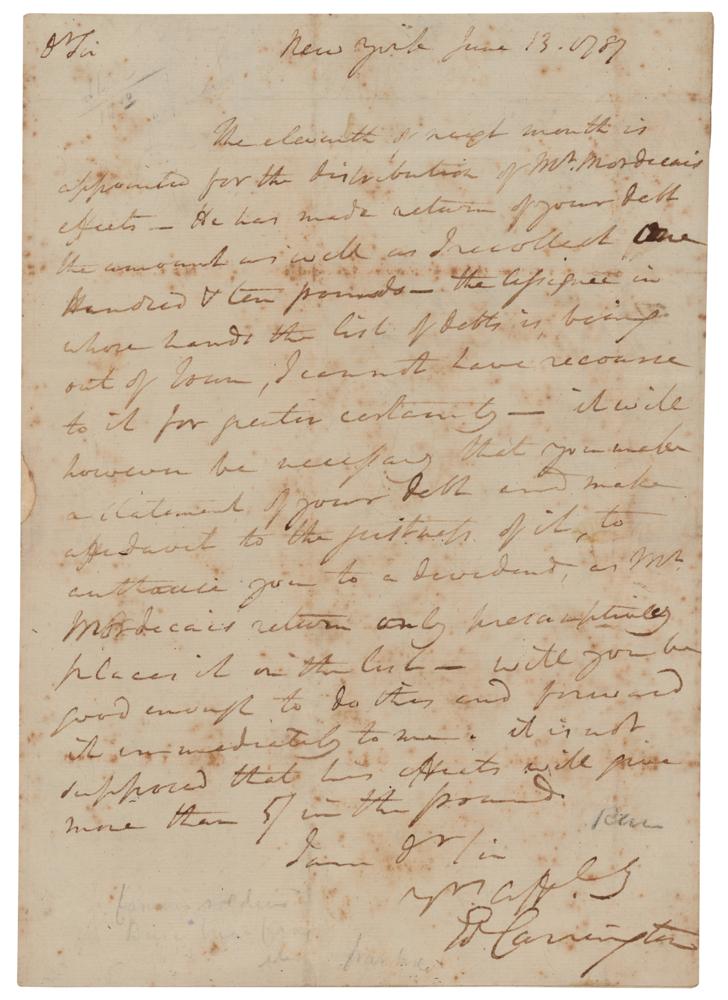 Dr Sir New York June 13. 1787
The eleventh of next month is
appointed for the distribution of Mr. Mordecais
effects — He has made return of your debt
the amount as well as I recollect One
Hundred & ten pounds — the assignee in
whose hands the list of debts is, being
out of Town, I cannot have recourse
to it for greater certainty — it will
however be necessary that you make
a statement of your debt and make
affidavit to the justness of it, to
authorise you to a dividend, as Mr.
Mordecais return only presumptively
places it on the list — will you be
good enough to do this and forward
it immediately to me. it is not
supposed that his effects will give
more than 5/ in the pound.
I am Dr Sir
yr. affe.
Ed. Carrington